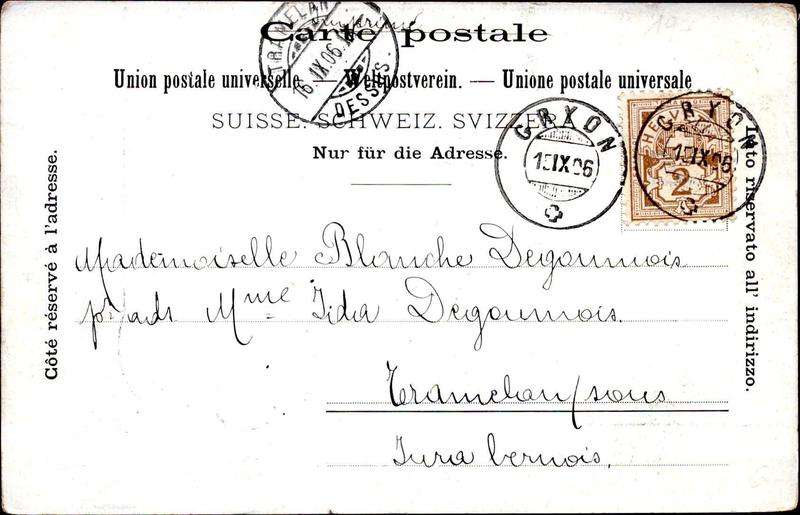 Imprimé
Carte postale
Union postale universelle. — Weltpostverein. — Unione postale universale
SUISSE. SCHWEIZ. SVIZZERA
Nur für die Adresse.
Côté réservé à l'adresse.
Lato riservato all' indirizzo.
TRAMELAN
16.IX.06.
DESSUS.
GRYON
15.IX.06
HELVETIA
2
GRYON
15.IX.06
Mademoiselle Blanche Degoumois
pr adr Mme Ida Degoumois.
Tramelan/sous
Jura bernois.